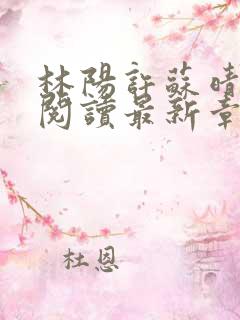 林陽許蘇晴
閱讀最新章
杜恩